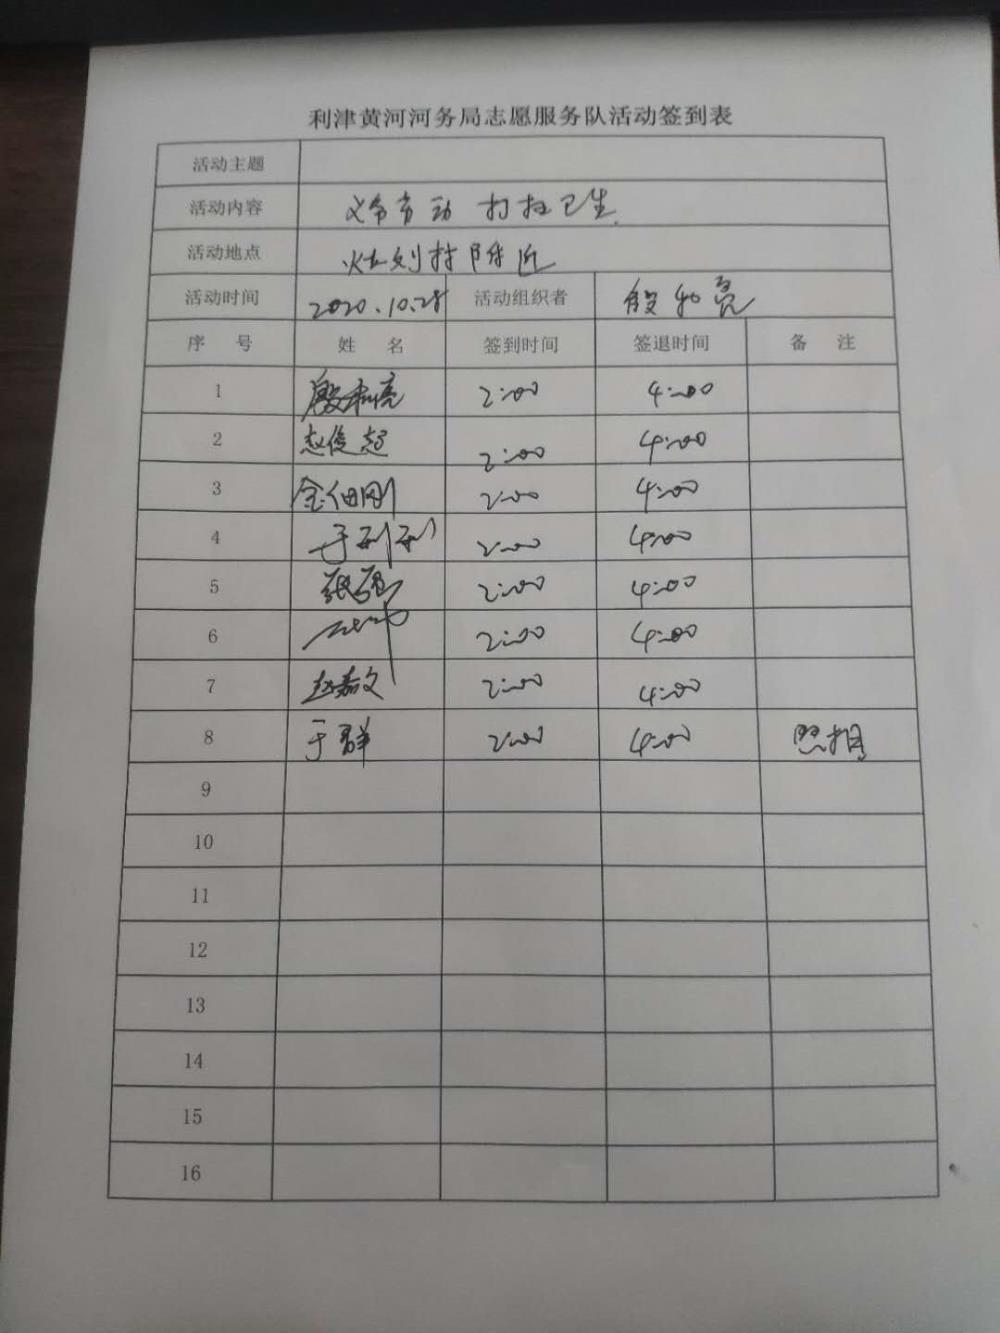 利津黄河河务局志愿服务队活动签到表
活动主题
活动内容 义务劳动 打扫卫生
活动地点 灶刘村附近
活动时间 2020.10.28 活动组织者 殷和亮
序 号 姓 名 签到时间 签退时间 备 注
1 殷和亮 2:00 4:00
2 赵俊超 2:00 4:00
3 2:00 4:00
4 2:00 4:00
5 张强 2:00 4:00
6 2:00 4:00
7 赵嘉文 2:00 4:00
8 于群 2:00 4:00 照相
9
10
11
12
13
14
15
16